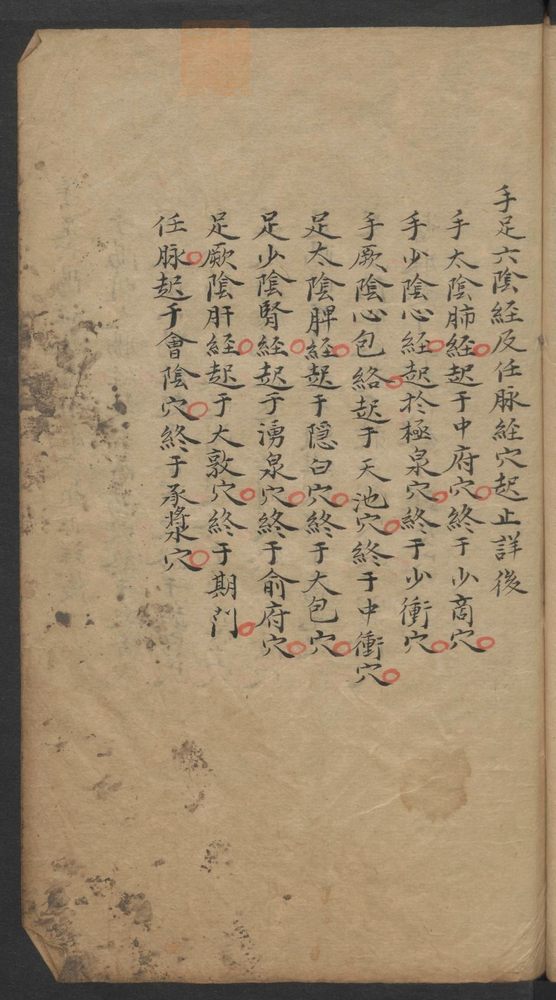 手足六陰經及任脉經穴起止詳後
手太陰肺經起于中府穴終于少商穴
手少陰心經起於極泉穴終于少衝穴
手厥陰心包絡起于天池穴終于中衝穴
足太陰脾經起于隱白穴終于大包穴
足少陰腎經起于湧泉穴終于俞府穴
足厥陰肝經起于大敦穴終于期門
任脉起于會陰穴終于承漿穴